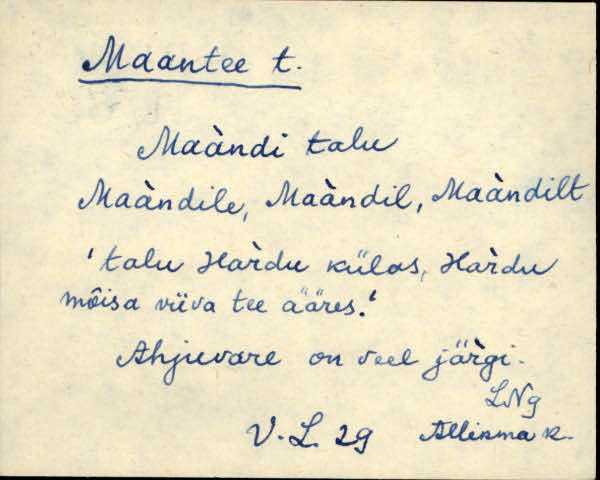 Maantee t.
Maàndi talu
Maàndile, Maàndil, Maàndilt
'talu Hàrdu külas, Hàrdu
mõisa viiva tee ääres.'
Ahjuvare on veel järgi.
LNg
V.L. 29 Allikma k.